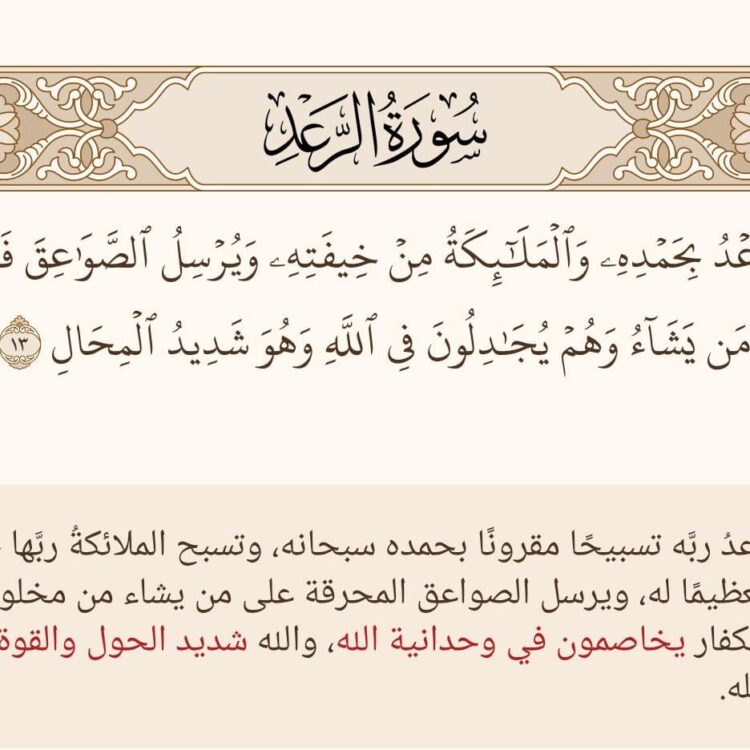 سُورَةُ الرَّعْدِ
عْدُ بِحَمْدِهِۦ وَٱلْمَلَـٰٓئِكَةُ مِنْ خِيفَتِهِۦ وَيُرْسِلُ ٱلصَّوَٰعِقَ فَ
مَن يَشَآءُ وَهُمْ يُجَـٰدِلُونَ فِى ٱللَّهِ وَهُوَ شَدِيدُ ٱلْمِحَالِ ١٣
عدُ ربَّه تسبيحًا مقرونًا بحمده سبحانه، وتسبح الملائكةُ ربَّها
عظيمًا له، ويرسل الصواعق المحرقة على من يشاء من مخلو
كفار يخاصمون في وحدانية الله، والله شديد الحول والقوة
له.